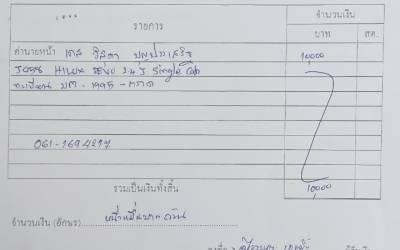 รายการ
จำนวนเงิน
บาท
สต.
ค่านายหน้า เคส วิสุดา บุญประเสริฐ 10,000
รถยนต์ Hilux REVO 2.4 J Single Cab
ทะเบียน บต - 1995 - ตราด
061-1694217
รวมเป็นเงินทั้งสิ้น 10,000
จำนวนเงิน (อักษร) หนึ่งหมื่นบาทถ้วน